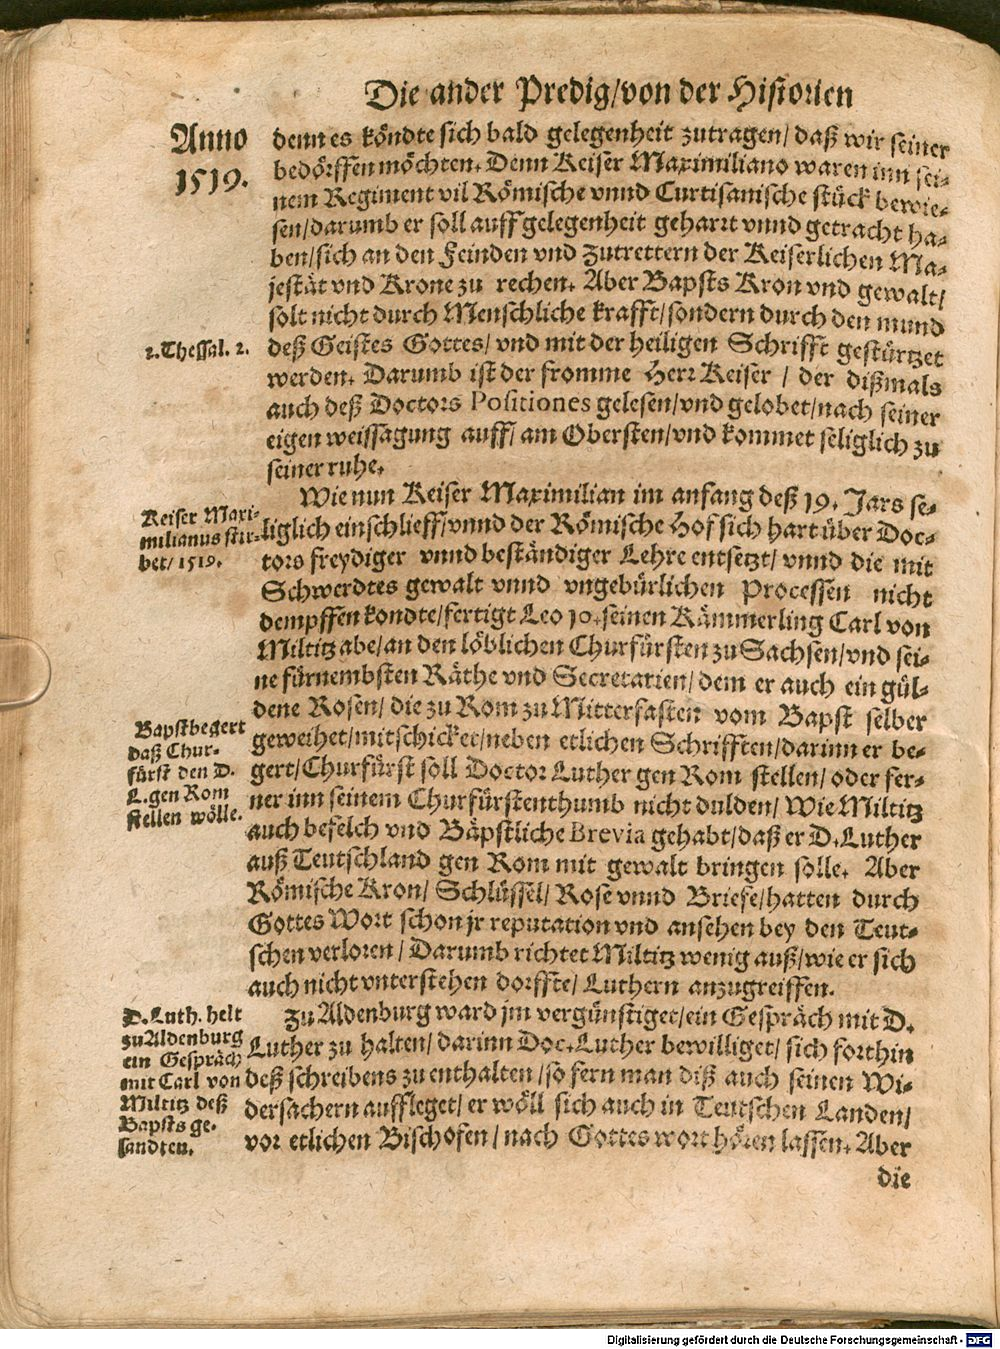 Die ander Predig/von der Historien
Anno
1519.
denn es köndte sich bald gelegenheit zutragen/ daß wir seiner
bedörffen möchten. Denn Keiser Maximiliano waren inn sei-
nem Regiment vil Römische vnnd Curtisanische stück bewie-
sen/darumb er soll auff gelegenheit geharrt vnnd getracht ha-
ben/sich an den Feinden vnd Zutrettern der Keiserlichen Ma-
jestät vnd Krone zu rechen. Aber Bapsts Kron vnd gewalt/
solt nicht durch Menschliche krafft/sondern durch den mund
2.Thessal. 2.
deß Geistes Gottes/ vnd mit der heiligen Schrifft gestürtzet
werden. Darumb ist der fromme Herr Keiser / der dißmals
auch deß Doctors Positiones gelesen/vnd gelobet/nach seiner
eigen weissagung auff/ am Obersten/vnd kommet seliglich zu
seiner ruhe.
Wie nun Keiser Maximilian im anfang deß 19. Jars se-
Keiser Maxi-
milianus stir-
bet/ 1519.
liglich einschlieff/vnnd der Römische Hof sich hart über Doc-
tors freydiger vnnd beständiger Lehre entsetzt/ vnnd die mit
Schwerdtes gewalt vnnd vngebürlichen Processen nicht
dempffen kondte/fertigt Leo 10. seinen Kämmerling Carl von
Miltitz abe/an den löblichen Churfürsten zu Sachsen/vnd sei-
ne fürnembsten Räthe vnd Secretarien/ dem er auch ein gül-
dene Rosen/ die zu Rom zu Mitterfasten vom Bapst selber
Bapst begert
daß Chur-
fürst den D.
L. gen Rom
stellen wölle.
geweihet/mitschicket/neben etlichen Schrifften/darinn er be-
gert/Churfürst soll Doctor Luther gen Rom stellen/ oder fer-
ner inn seinem Churfürstenthumb nicht dulden/ Wie Miltitz
auch befelch vnd Bäpstliche Brevia gehabt/daß er D.Luther
auß Teutschland gen Rom mit gewalt bringen solle. Aber
Römische Kron/ Schlüssel/ Rose vnnd Briefe/hatten durch
Gottes Wort schon jr reputation vnd ansehen bey den Teut-
schen verloren / Darumb richtet Miltitz wenig auß/wie er sich
auch nicht vnterstehen dorffte/ Luthern anzugreiffen.
D. Luth. helt
zu Aldenburg
ein Gespräch
mit Carl von
Miltitz deß
Bapsts ge-
sandten.
Zu Aldenburg ward jm vergünstiget/ein Gespräch mit D.
Luther zu halten/ darinn Doc.Luther bewilliget/ sich forthin
deß schreibens zu enthalten /so fern man diß auch seinen Wi-
dersachern aufflegete/ er wöll sich auch in Teutschen Landen/
vor etlichen Bischofen /nach Gottes wort hören lassen. Aber
die
Digitalisierung gefördert durch die Deutsche Forschungsgemeinschaft - DFG